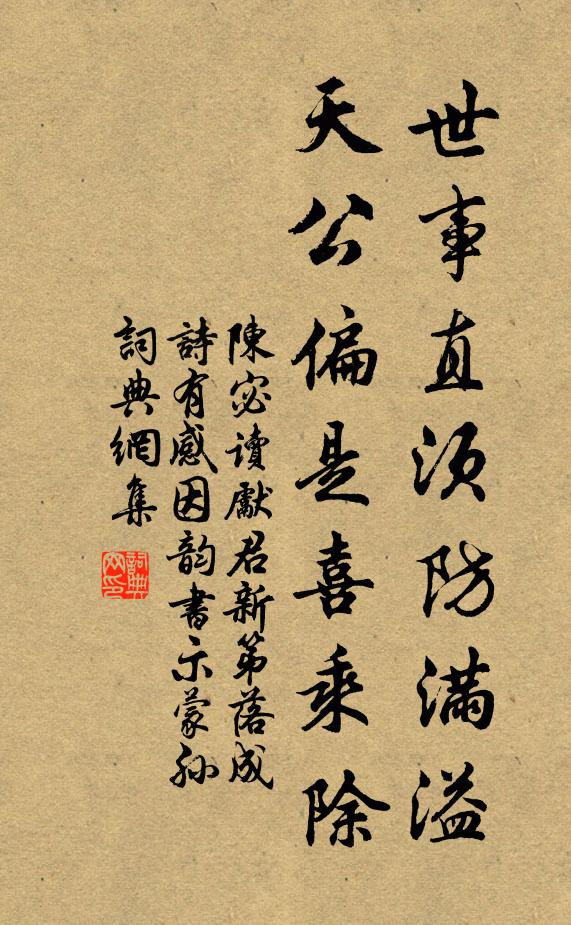 世事直須防滿溢
天公偏是喜乘除
陳宓讀獻君新第落成
詩有感因韵書示蒙孫
詞典網集
詞典
网印